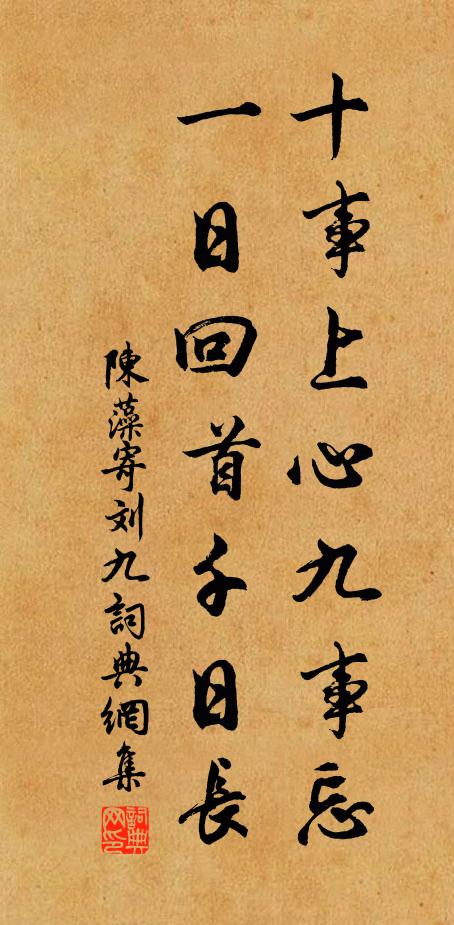 十事上心九事忘
一日回首千日長
陳藻寄刘九詞典網集
詞典網印